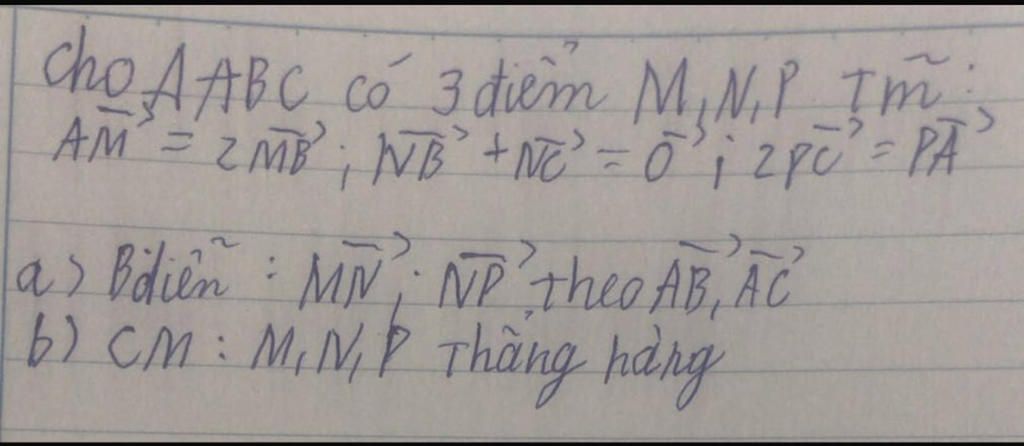 Cho ΔABC có 3 điểm M,N,P Tm̃:
AM⃗ = 2MB⃗; NB⃗ + NC⃗ = O⃗; 2PC⃗ = PA⃗
a) Bdiễn: MN⃗; NP⃗ theo AB⃗, AC⃗
b) CM: M,N,P Thẳng hàng